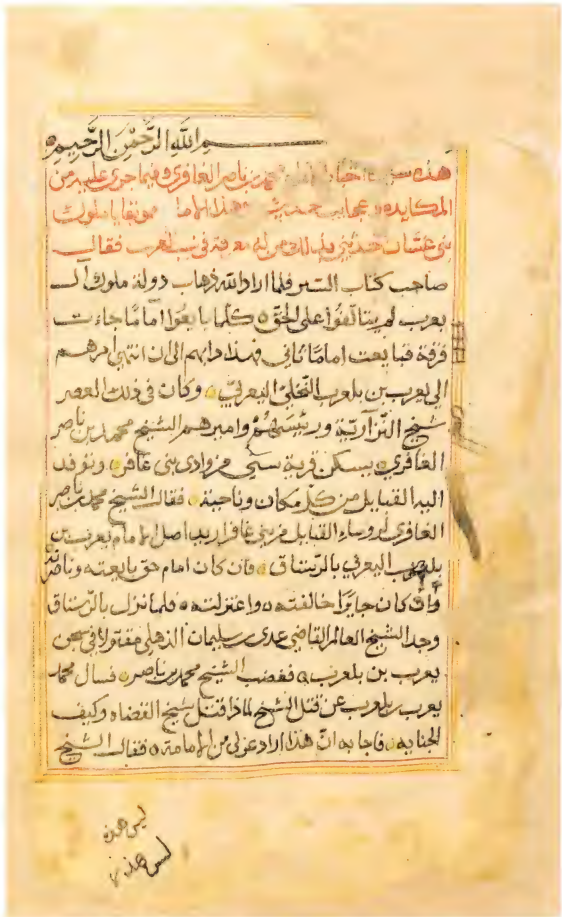 بسم الله الرحمن الرحيم
هذه سيرة الامام محمد بن ناصر الغافري وفيما جرى عليه من
المكايده وعجايب حديث هذا الامام
بني غسان فقال
صاحب كتاب السير فلما اراد الله ذهاب دولة ملوك آل
يعرب لم يتالفوا على الحق ه كلما بايعوا امامًا جاءت
فرقة فبايعت امامًا ثاني فهذا دابهم الى ان انتهى امرهم
الى يعرب بن بلعرب النخلي اليعربي ه وكان في ذلك العصر
شيخ النزاريّة ورئيسهم واميرهم الشيخ محمد بن ناصر
الغافري ه يسكن قرية سيفي من وادي بني غافر ه وتوفد
اليه القبايل من كل مكان وناحية ه فقال الشيخ محمد بن ناصر
الغافري لروساء القبايل من بني غافر اريد اصل الامام يعرب بن
بلعرب اليعربي بالرستاق ه فان كان امام حق بايعته وناصرته
وان كان جايرًا خالفته ه واعتزلته ه فلما نزل بالرستاق
وجد الشيخ العالم القاضي عدي بن سليمان الذهلي مقتولا في سجن
يعرب بن بلعرب ه فغضب الشيخ محمد بن ناصر ه فسال محمد
يعرب بن بلعرب عن قتل الشيخ لماذا قتل شيخ القضاه وكيف
الجنايه ه فاجابه انّ هذا اراد عزلي من الامامة ه فقال الشيخ
ليس هذه
ليس هذه